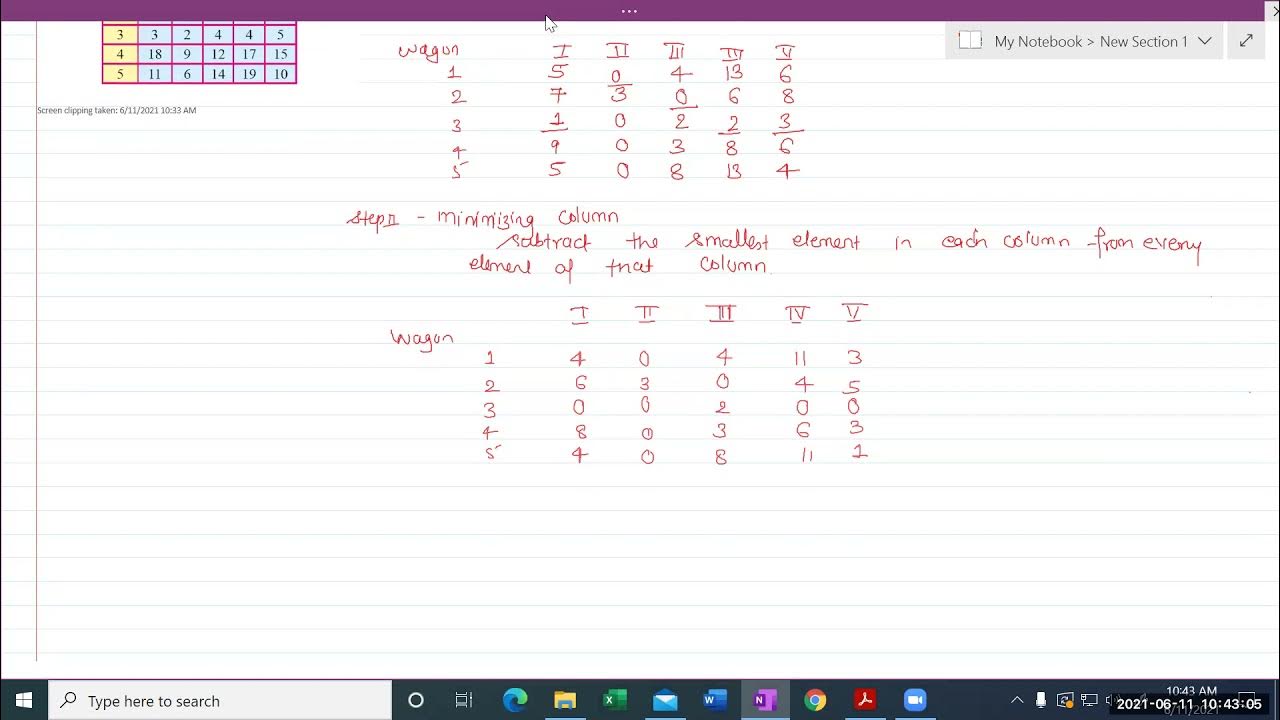 ...
My Notebook > New Section 1
3 3 2 4 4 5
4 18 9 12 17 15
5 11 6 14 19 10
Screen clipping taken: 6/11/2021 10:33 AM
Wagon I II III IV V
1 5 0 4 13 6
2 7 3 0 6 8
3 1 0 2 2 3
4 9 0 3 8 6
5 5 0 8 13 4
Step II - Minimizing column
Subtract the smallest element in each column from every
element of that column.
I II III IV V
Wagon
1 4 0 4 11 3
2 6 3 0 4 5
3 0 0 2 0 0
4 8 0 3 6 3
5 4 0 8 11 1
Type here to search
10:43 AM
2021-06-11 10:43:05